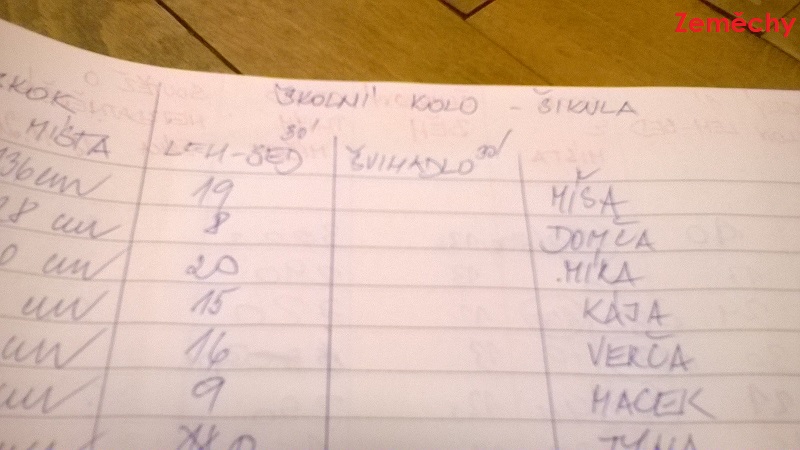 Zeměchy
ŠKOLNÍ KOLO - ŠIKULA
SKOK
MÍSTA LEH-SED 30' ŠVIHADLO 30'
136cm 19 MÍŠA
8 cm 8 DOMČA
0 cm 20 MÍKA
cm 15 KÁJA
cm 16 VERČA
cm 9 MACEK
TÝNA